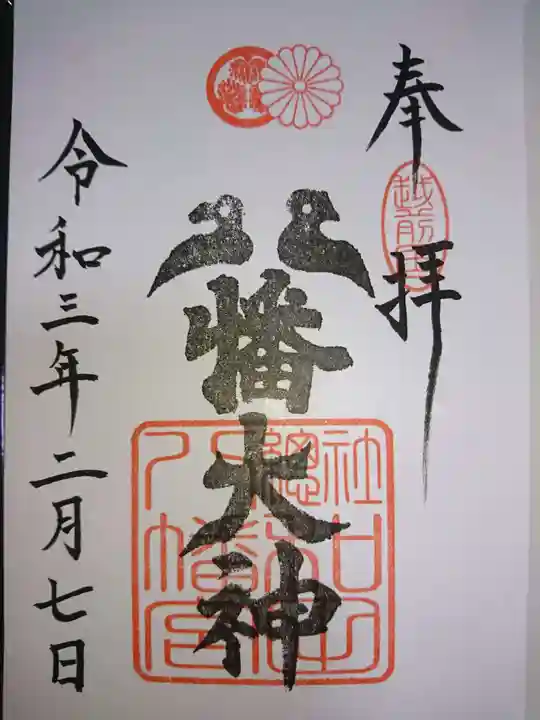 奉拝
越前国
八幡大神
総社
八幡宮
令和三年二月七日